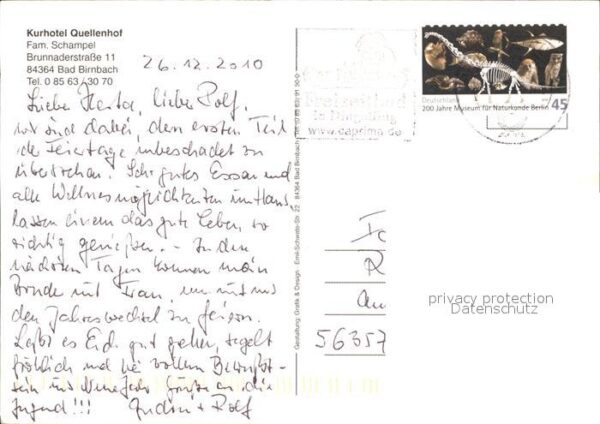 Kurhotel Quellenhof
Fam. Schampel
Brunnaderstraße 11
84364 Bad Birnbach
Tel. 0 85 63 / 30 70
26.12.2010
Liebe Herta, lieber Rolf,
wir sind dabei, den ersten Teil
der Feiertage unbeschadet zu
überstehen. Sehr gutes Essen und
alle Wellnessmöglichkeiten im Haus,
lassen einem das gute Leben, so
richtig genießen. – In den
nächsten Tagen kommen mein
Bruder mit Frau, um mit uns
den Jahreswechsel zu feiern.
Laßt es Euch gut gehen,
fröhlich und bei vollem Bewußt-
sein ins Neue Jahr. Grüße an die
Jugend!!! + Rolf
Gestaltung: Grafik & Design
84364 Bad Birnbach
Freizeitbad
in Dingolfing
www.caprima.de
Deutschland
200 Jahre Museum für Naturkunde Berlin
45
An
56357
privacy protection
Datenschutz